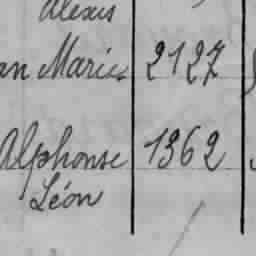 Alexis
an Marie 2127
Alphonse 1362
Léon